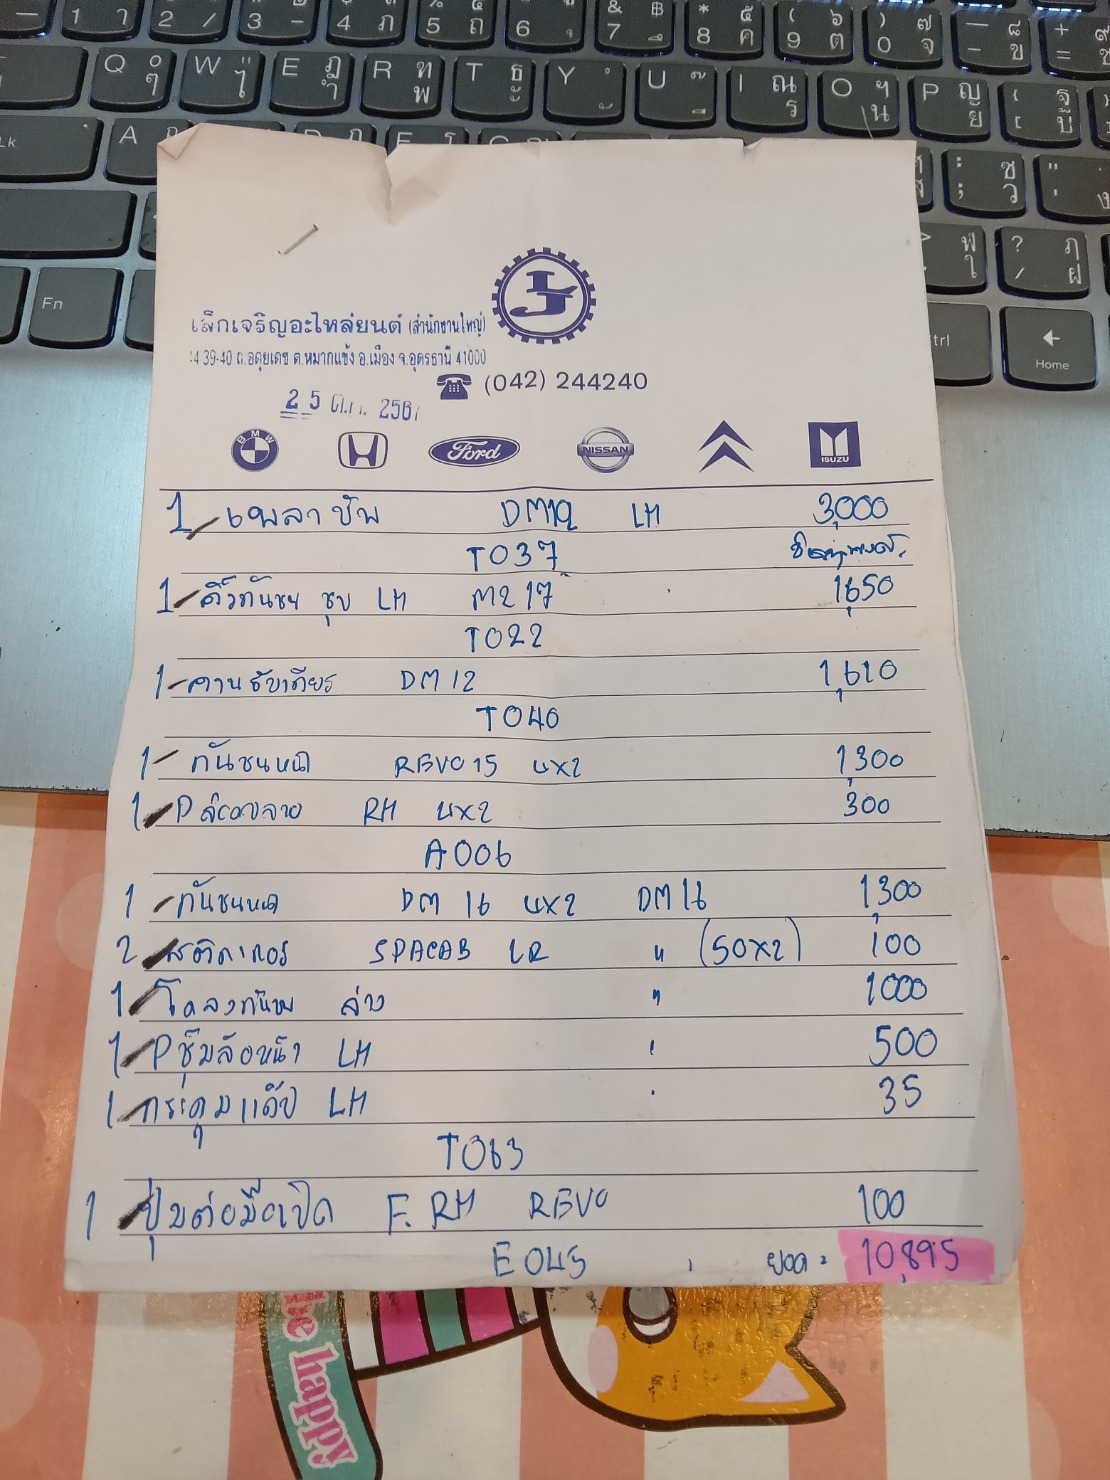 เล็กเจริญอะไหล่ยนต์ (สำนักงานใหญ่)
39-40 ถ.อดุยเดช ต.หมากแข้ง อ.เมือง จ.อุดรธานี 41000
(042) 244240
25 ต.ค. 2567
BMW Ford NISSAN ISUZU
1 เพลาขับ DM12 LH 3,000
T037
1 คิ้วกันชน ชุบ LH M217 1,650
T022
1 DM12 1,610
T040
1 กันชนหน้า REVO15 4X2 1,300
1 P RH 4X2 300
A006
1 กันชนหน้า DM16 4X2 DM16 1,300
2 สติกเกอร์ SPACAB LR " (50X2) 100
1 โครงกันชน ล่าง " 1000
1 P ซุ้มล้อหน้า LH 500
1 กระดุมแก้ป LH 35
T063
1 ปุ่มต่อมือเปิด F. RH REVO 100
E045 ยอด = 10,895
Q W E R T Y U I O P
A
Fn
ctrl
Home
happy